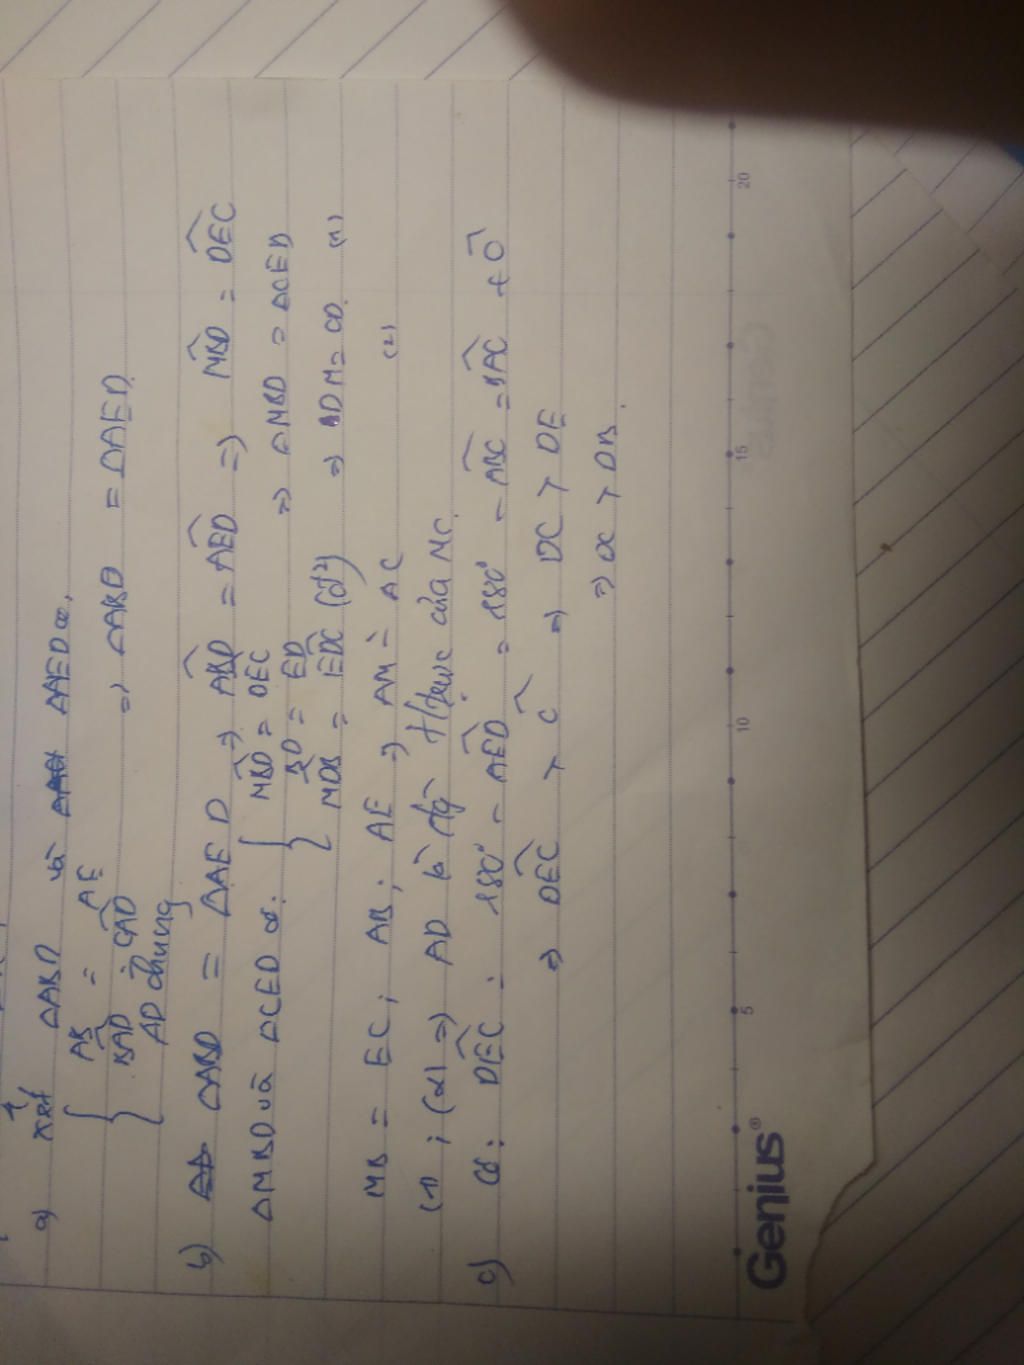 a) xét ΔABD và ΔAED có,
{ AB = AE
BAD = CAD
AD chung
=> ΔABD = ΔAED
b) ΔABD = ΔAED => ABD = AED => MBD = DEC
ΔMBD và ΔCED có: { MBD = DEC
BD = ED
MDB = EDC (đ²)
=> ΔMBD = ΔCED
=> DM = CD. (1)
MB = EC; AB = AE => AM = AC (2)
(1); (2) => AD là của MC.
c) Có: DEC = 180° - AED = 180° - ABC = BAC + C
=> DEC > C => DC > DE
=> DC > DB.
Genius®
5 10 15 20